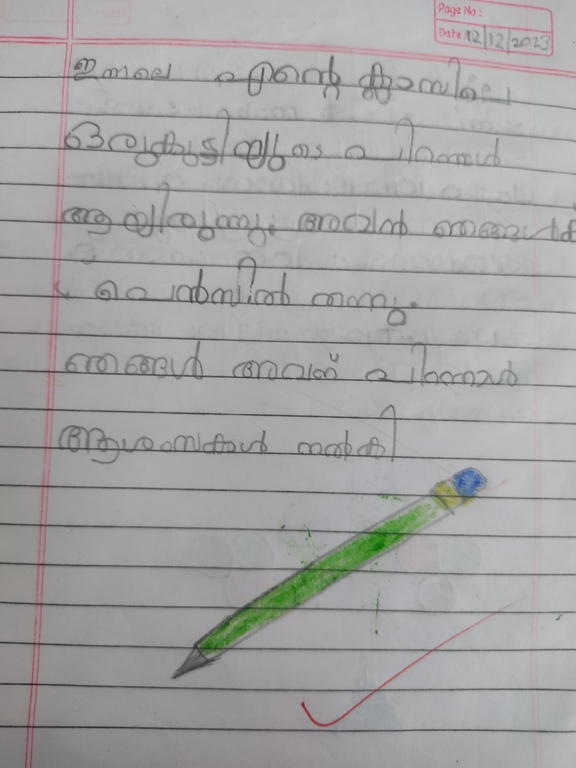 Page No :
Date: 12/12/2023
ഇന്നലെ എന്റെ ക്ലാസിലെ
ഒരുകുട്ടിയുടെ പിറന്നാൾ
ആയിരുന്നു. അവൻ ഞങ്ങൾക്
ക് പെൻസിൽ തന്നു.
ഞങ്ങൾ അവന് പിറന്നാൾ
ആശംസകൾ നൽകി